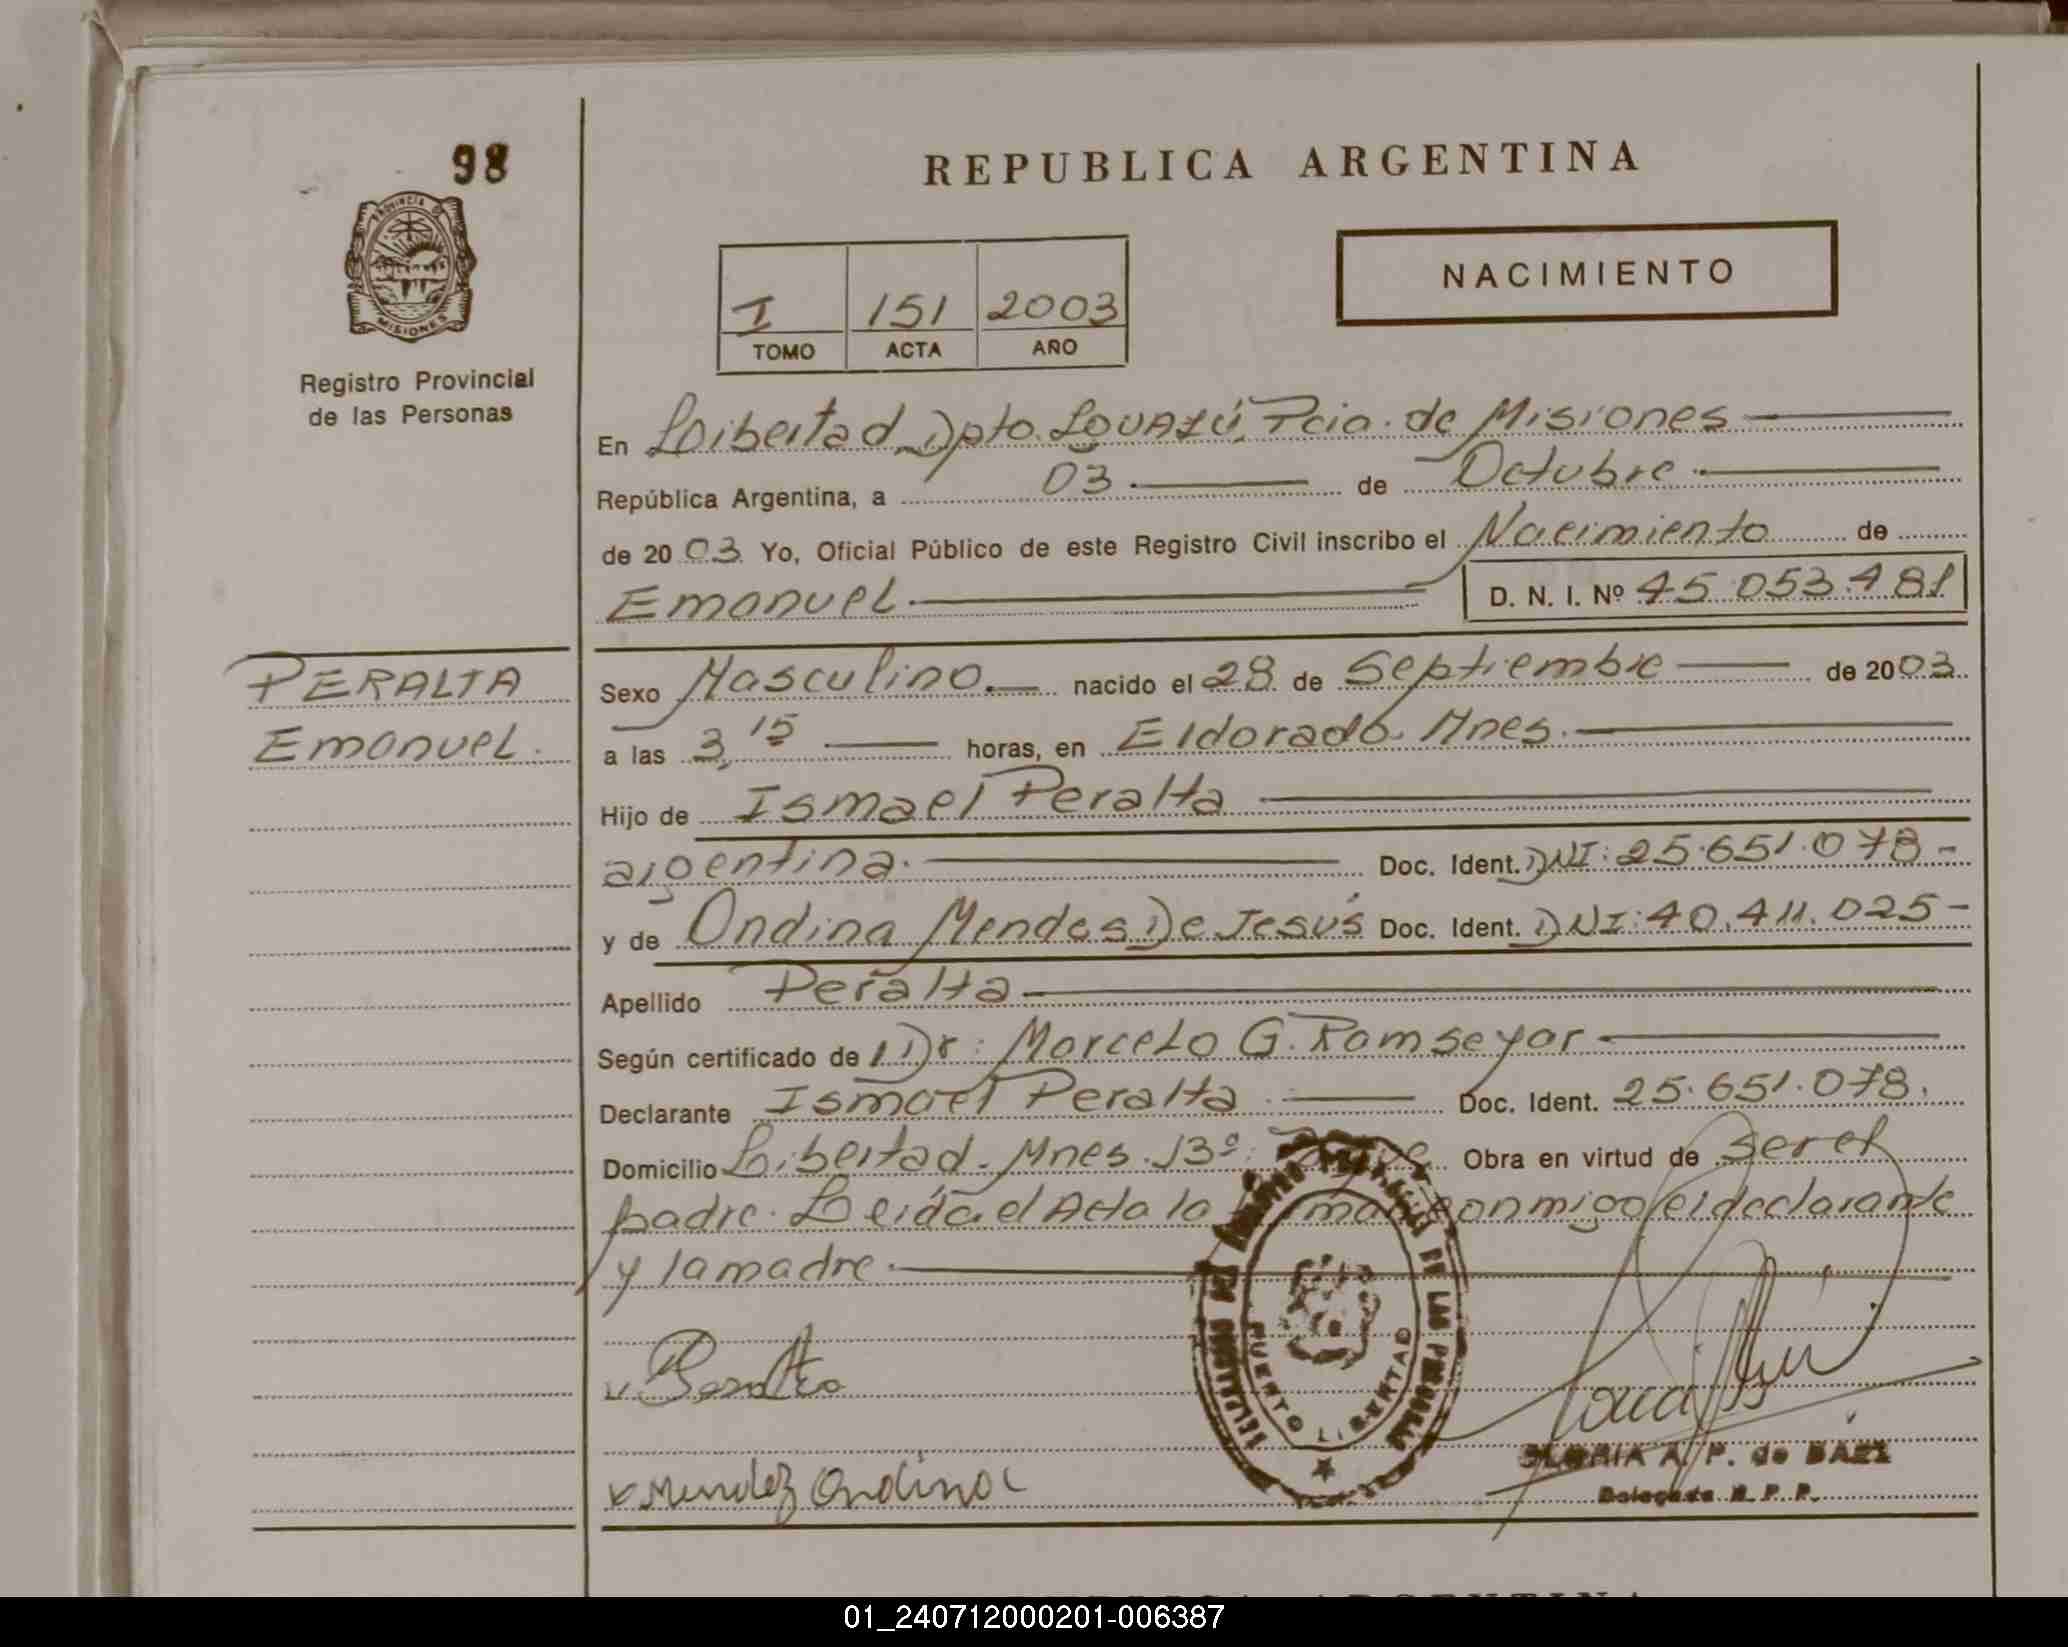 98
REPUBLICA ARGENTINA
PROVINCIA DE
MISIONES
Registro Provincial
de las Personas
NACIMIENTO
I 151 2003
TOMO ACTA AÑO
En Libertad Dpto. Iguazú, Pcia. de Misiones
República Argentina, a 03 de Octubre
de 2003 Yo, Oficial Público de este Registro Civil inscribo el Nacimiento de
Emanuel D. N. I. Nº 45.053.481
PERALTA
Emanuel.
Sexo Masculino. nacido el 28 de Septiembre de 2003
a las 3,15 horas, en Eldorado. Mnes.
Hijo de Ismael Peralta
argentina. Doc. Ident. DNI: 25.651.078-
y de Ondina Mendes De Jesús Doc. Ident. DNI: 40.411.025-
Apellido Peralta
Según certificado de Dr: Marcelo G. Ramseyar
Declarante Ismael Peralta Doc. Ident. 25.651.078.
Domicilio Libertad. Mnes. Bº: Obra en virtud de Ser el
padre. Leída el Acta la firman conmigo el declarante
y la madre.
Peralta
Mendez Ondina
DE LAS PERSONAS
PUERTO LIBERTAD
GLORIA A. P. de BAEZ
Delegada R. P. P.
01_240712000201-006387